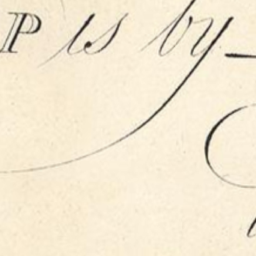 P is by